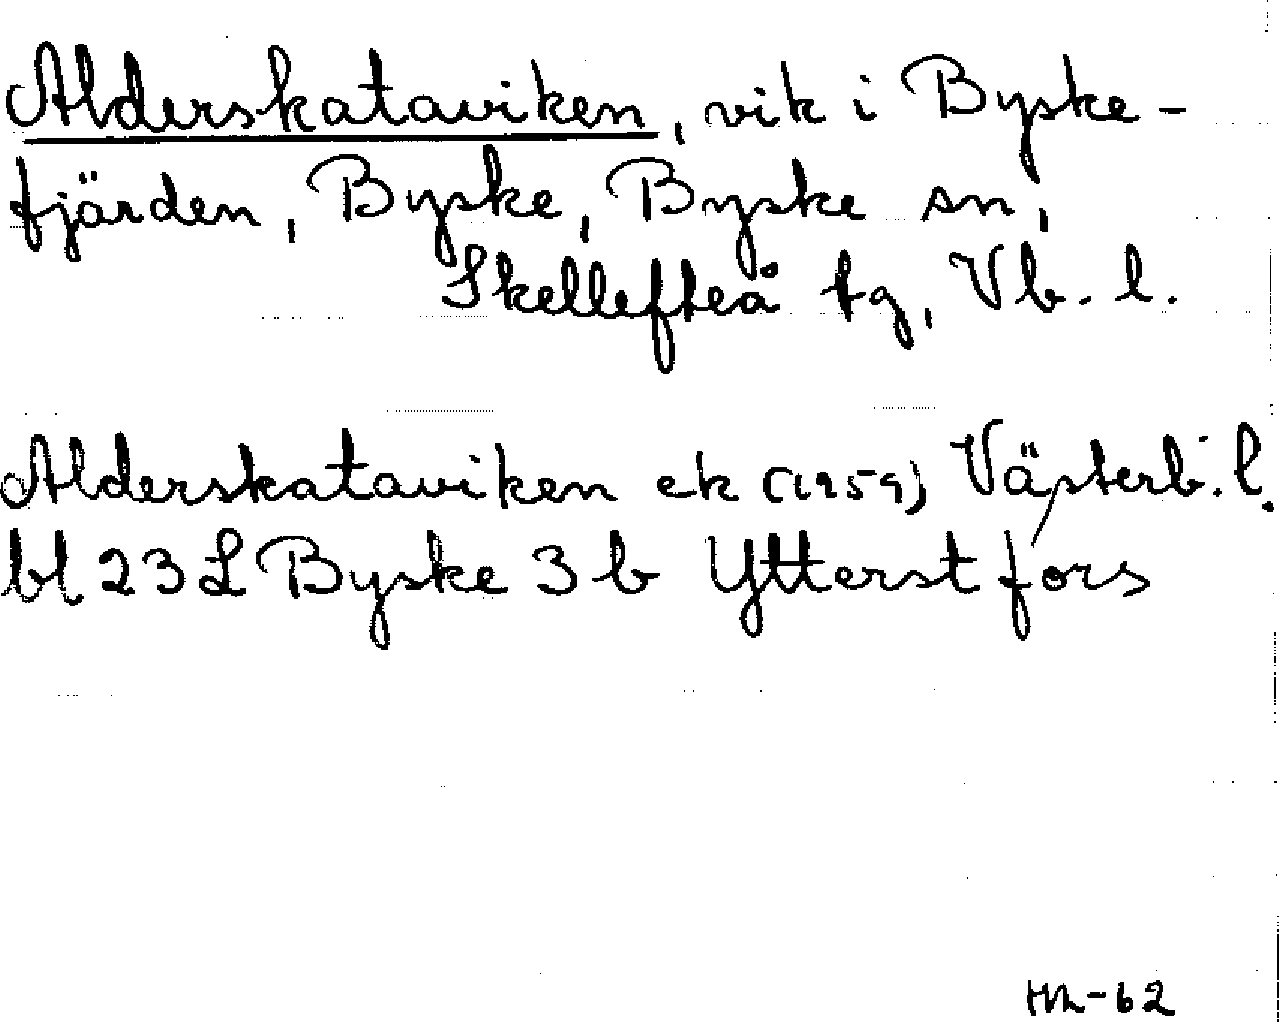 Alderskataviken, vik i Byske-
fjärden, Byske, Byske sn,
Skellefteå tg, Vb. l.
Alderskataviken ek (1959) Västerb. l.
bl 23 L Byske 3 b Ytterstfors
Hn-62